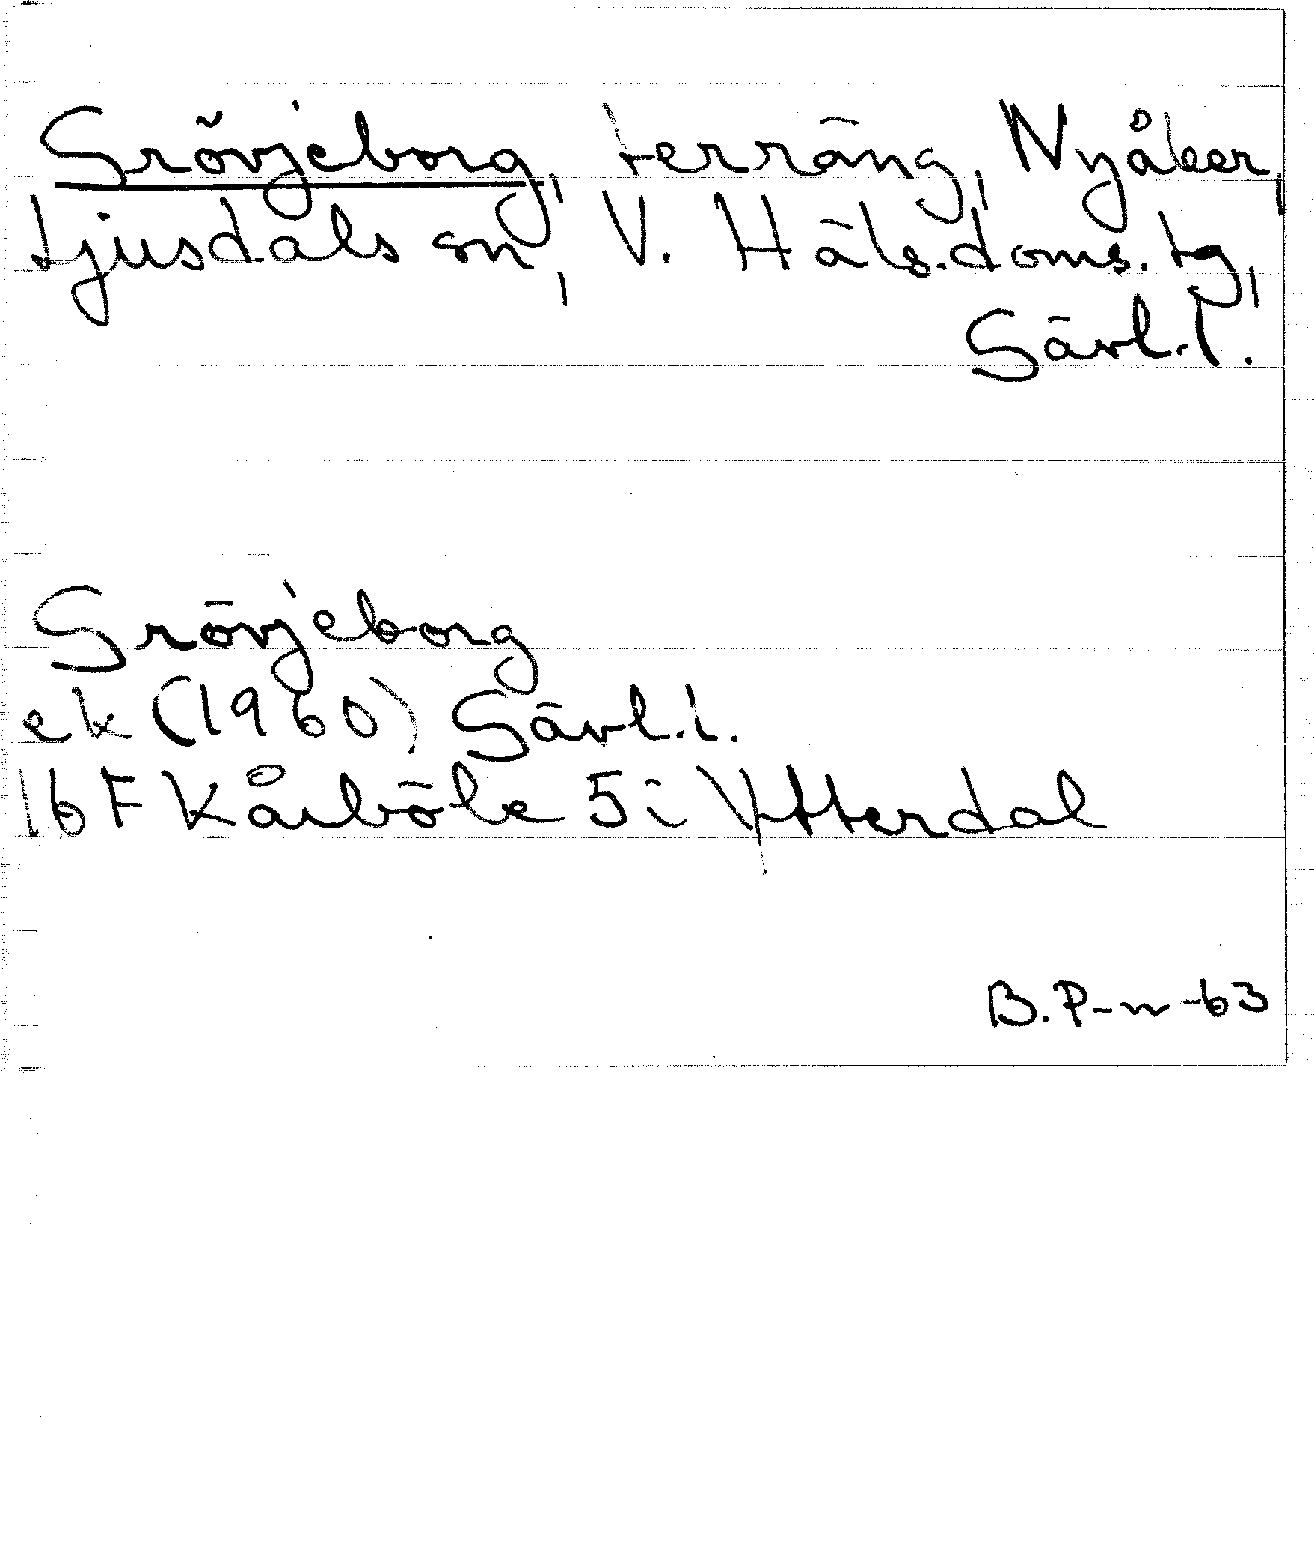 Grövjeborg, terräng, Nyåker,
Ljusdals sn, V. Häls. doms. tg,
Gävl.l.
Grövjeborg
ek (1960) Gävl.l.
16F Kårböle 5i Ytterdal
B.P-n -63